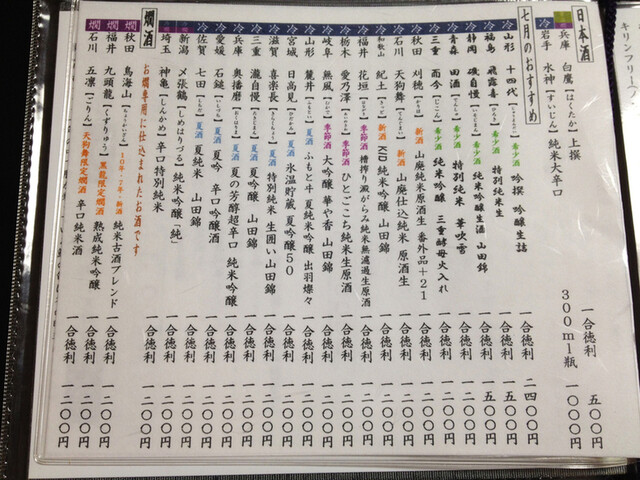 キリンフリー
日本酒
兵庫 白鷹【はくたか】 上撰 一合徳利 五〇〇円
冷 岩手 水神【すいじん】 純米大辛口 300ml瓶 一〇〇〇円
七月のおすすめ
冷 山形 十四代 希少酒 吟撰 吟醸生詰 一合徳利 二四〇〇円
冷 福島 飛露喜 希少酒 特別純米生 一合徳利 一五〇〇円
冷 静岡 磯自慢 希少酒 純米吟醸生酒 山田錦 一合徳利 一五〇〇円
冷 青森 田酒 希少酒 特別純米 華吹雪 一合徳利 一二〇〇円
冷 三重 而今 希少酒 純米吟醸 三重酵母火入れ 一合徳利 一二〇〇円
冷 秋田 刈穂 新酒 山廃純米原酒生 番外品+21 一合徳利 一二〇〇円
冷 石川 天狗舞 新酒 山廃仕込純米 原酒生 一合徳利 一二〇〇円
冷 和歌山 紀土 新酒 KID 純米吟醸 山田錦 一合徳利 一二〇〇円
冷 福井 花垣 季節酒 槽搾り澱がらみ純米無濾過生原酒 一合徳利 一二〇〇円
冷 栃木 愛乃澤 季節酒 ひとごこち純米生原酒 一合徳利 一二〇〇円
冷 岐阜 無風 季節酒 大吟醸 華や香 山田錦 一合徳利 一二〇〇円
冷 山形 麓井 夏酒 ふもと井 夏純米吟醸 出羽燦々 一合徳利 一二〇〇円
冷 宮城 日高見 夏酒 氷温貯蔵 夏吟醸50 一合徳利 一二〇〇円
冷 滋賀 喜楽長 夏酒 特別純米 生囲い 山田錦 一合徳利 一二〇〇円
冷 三重 瀧自慢 夏酒 夏吟醸 山田錦 一合徳利 一二〇〇円
冷 兵庫 奥播磨 夏酒 夏の芳醇超辛口 純米吟醸 一合徳利 一二〇〇円
冷 愛媛 石鎚 夏酒 夏吟 辛口 吟醸酒 一合徳利 一二〇〇円
冷 佐賀 七田 夏酒 夏純米 山田錦 一合徳利 一二〇〇円
新潟 〆張鶴【しめはりづる】 純米吟醸「純」 一合徳利 一二〇〇円
埼玉 神亀【しんかめ】 辛口特別純米 一合徳利 一二〇〇円
燗酒
お燗専用に仕込まれたお酒です
燗 秋田 鳥海山 10年・7年・新酒 純米古酒ブレンド 一合徳利 一二〇〇円
燗 福井 九頭龍【くずりゅう】 黒龍限定燗酒 熟成純米吟醸 一合徳利 一二〇〇円
燗 石川 五凛【ごりん】 天狗舞限定燗酒 辛口純米酒 一合徳利 一二〇〇円